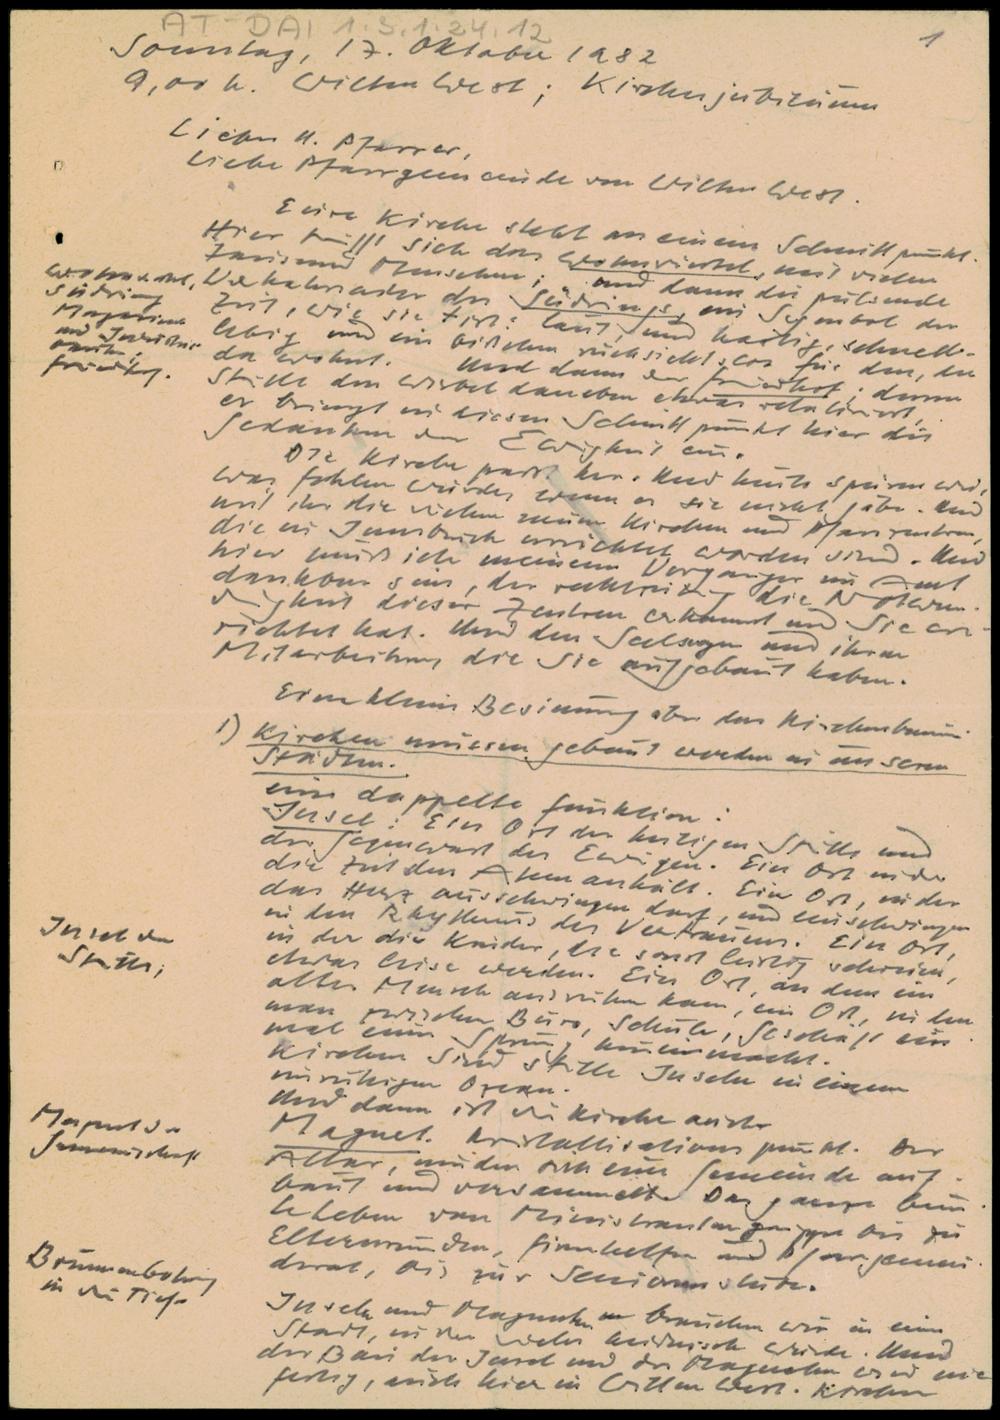 AT-DAI 1.3.1.24.12
1
Sonntag, 17. Oktober 1982
9,00 h. Wilten West; Kirchenjubiläum
Lieber H. Pfarrer,
Liebe Pfarrgemeinde von Wilten West.
Eure Kirche steht an einem Schnittpunkt.
Hier trifft sich das Wohnviertel, mit vielen
Tausend Menschen; und dann die pulsende
Verkehrsader des Südrings, ein Symbol der
Zeit, wie sie ist: laut, und hastig, schnell-
lebig und ein bißchen rücksichtslos für den, der
da wohnt. Und dann der Friedhof; dessen
Stille den Wirbel daneben etwas relativiert,
er bringt in diesen Schnittpunkt hier die
Gedanken der Ewigkeit ein.
Südring
Magazine
und
Friedhof.
Die Kirche passt her. Und heute spüren wir,
was fehlen würde, wenn es sie nicht gäbe. Und
mit ihr die vielen neuen Kirchen und Pfarrzentren,
die in Innsbruck errichtet worden sind. Und
hier muß ich meinem Vorgänger im Amt
dankbar sein, der rechtzeitig die Notwen-
digkeit dieser Zentren erkannt und sie er-
richtet hat. Und den Seelsorgern und ihren
Mitarbeitern, die sie aufgebaut haben.
Eine kleine Besinnung über den Kirchenbau
1) Kirchen müssen gebaut werden in unseren
Städten.
eine doppelte Funktion:
Insel: Ein Ort der heiligen Stille und
der Gegenwart des Ewigen. Ein Ort in der
die Zeit den Atem anhält. Ein Ort, in der
das Herz ausschwingen darf, und einschwingen
in den Rhythmus des Vertrauens. Ein Ort,
in der die Kinder, die sonst lustig schreien,
etwas leise werden. Ein Ort, an dem ein
alter Mensch ausruhen kann, ein Ort, in den
man zwischen Büro, Schule, Geschäft ein-
mal einen Sprung hineinmacht.
Kirchen sind stille Inseln in einem
unruhigen Ozean.
Insel der
Stille;
Und dann ist die Kirche auch
Magnet. Kristallisationspunkt. Der
Altar, um den sich eine Gemeinde auf-
baut und versammelt. Das ganze bunte
Leben von Ministrantengruppe bis zu
Elternrunden, Firmhelfer und Pfarrgemein-
derat, bis zur Seniorenstube.
Magnet der
Gemeinschaft
Brunnenbohrung
in die Tiefe
Inseln und Magneten brauchen wir in einer
Stadt, in der vieles heidnisch würde. Und
der Bau der Insel und des Magneten wird nie
fertig, auch hier in Wilten West. Kirchen